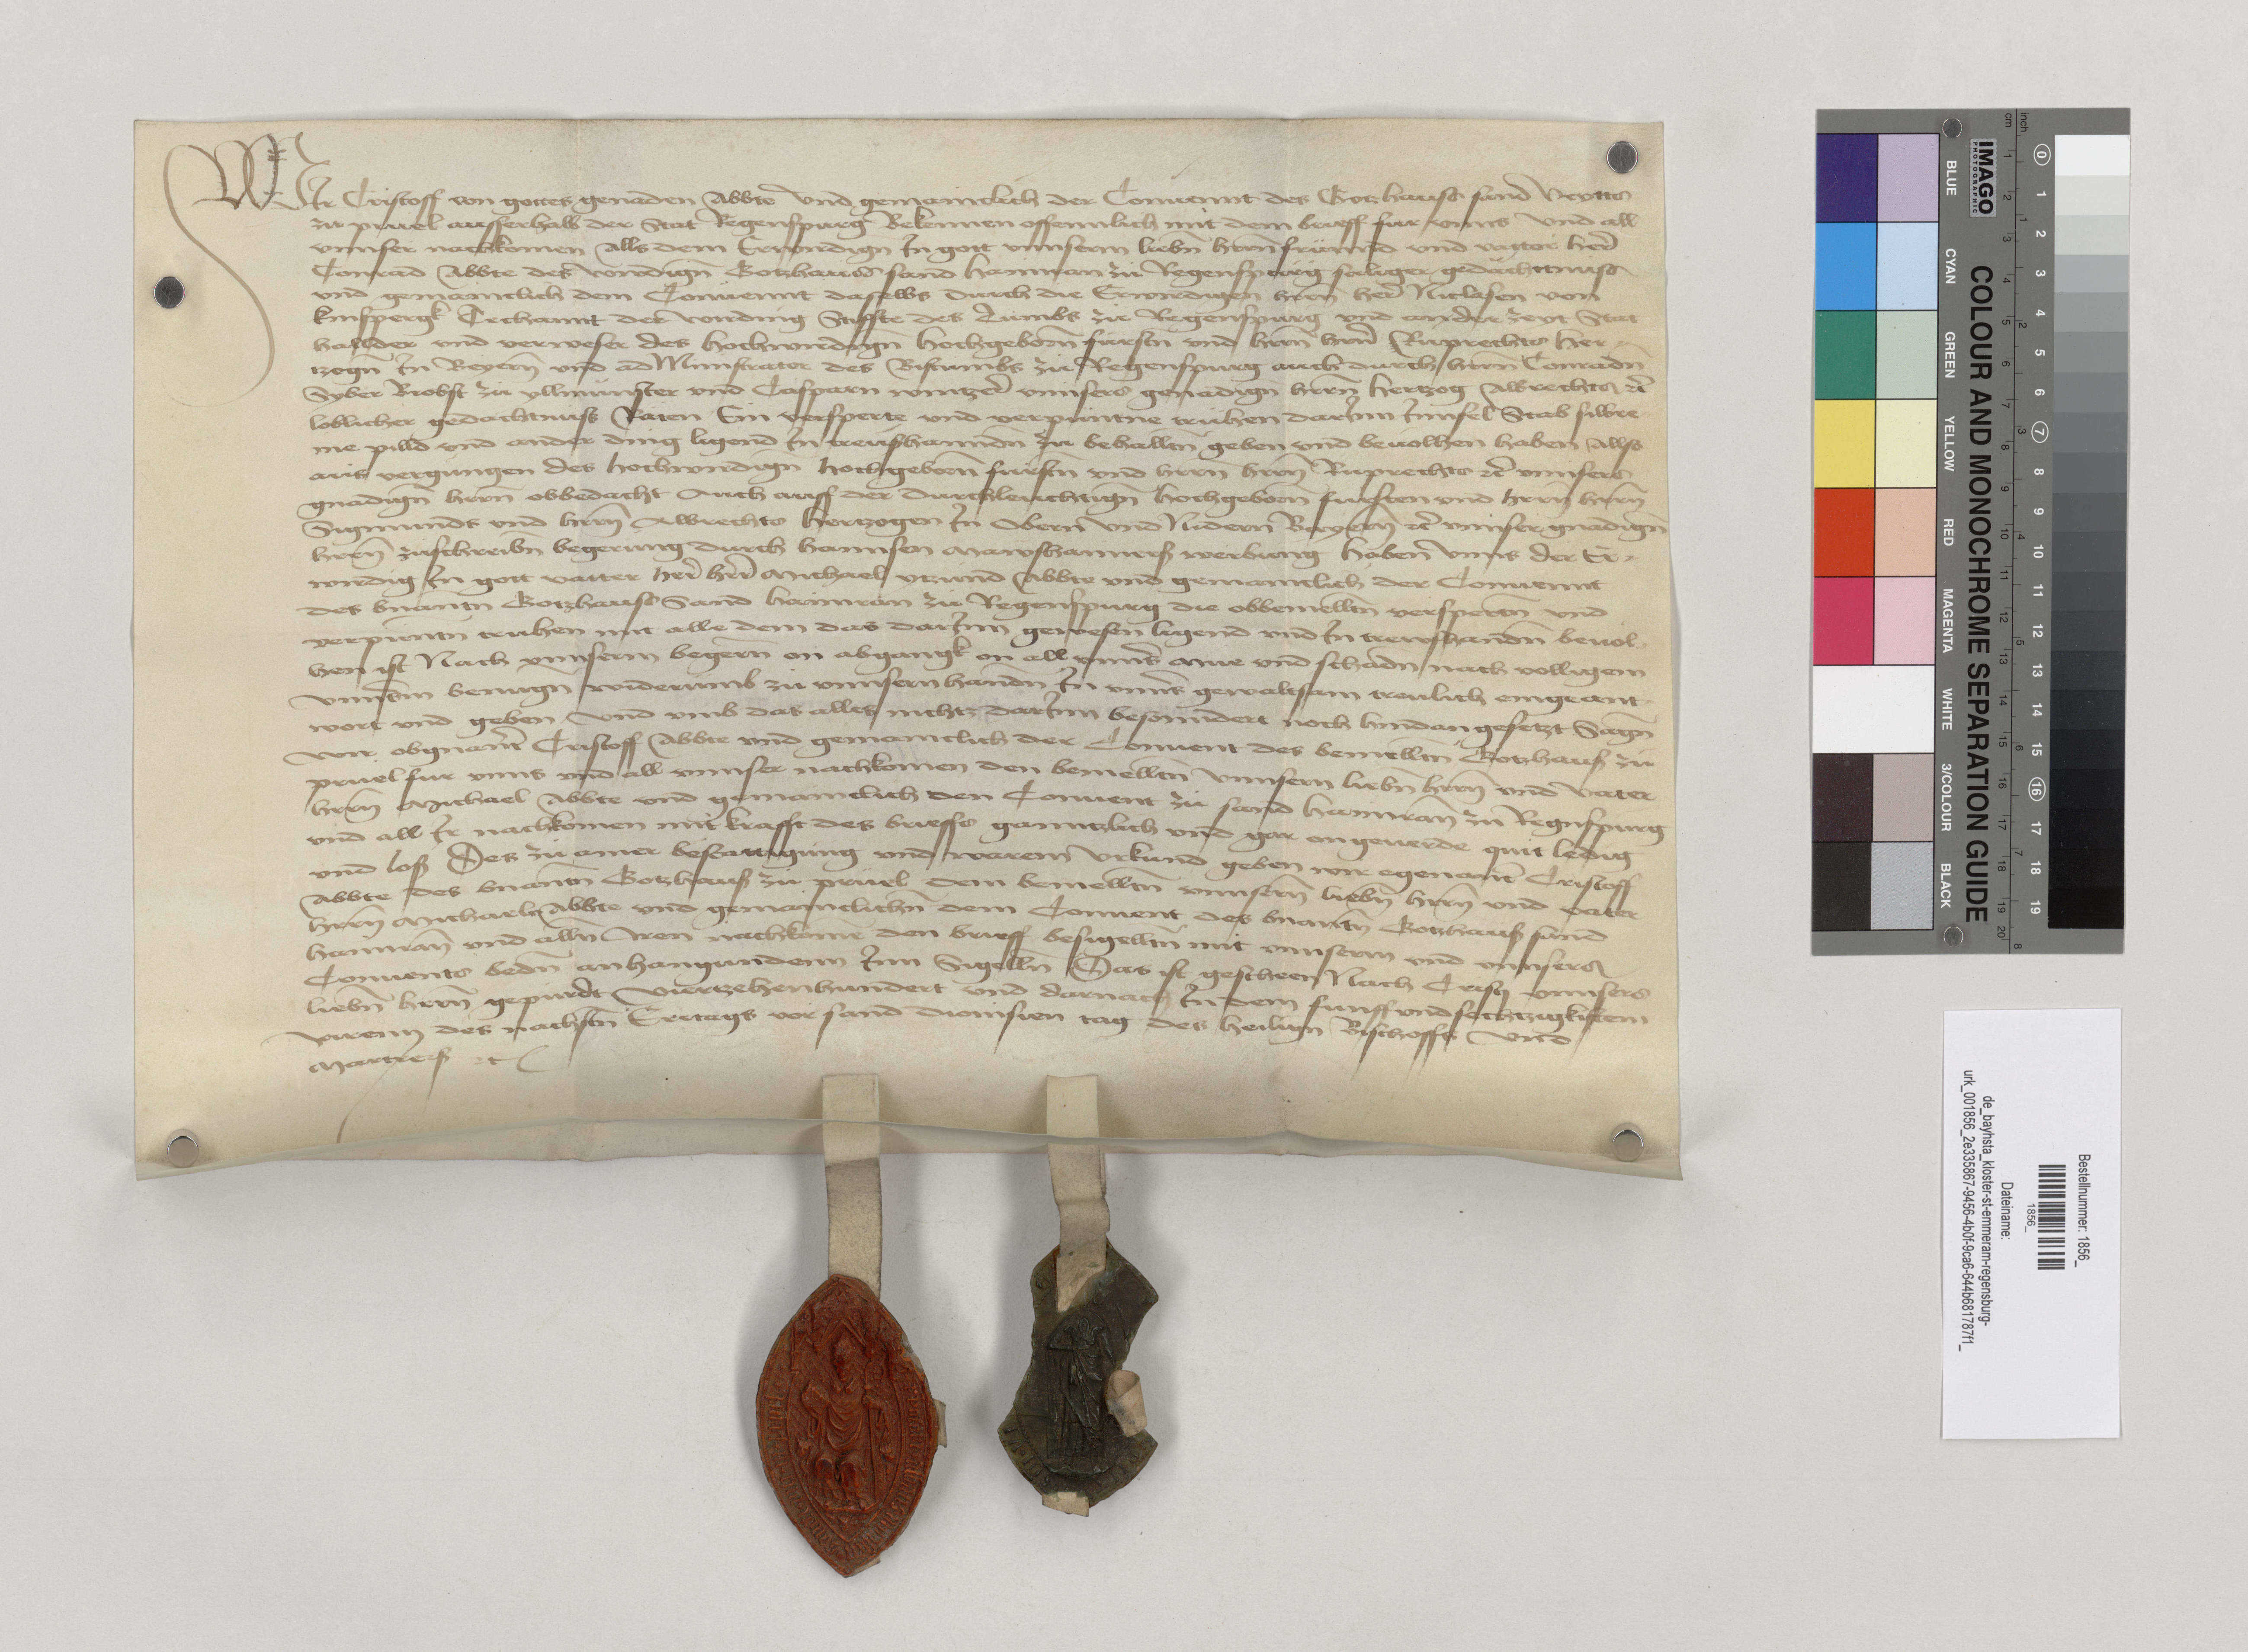 Wir Cristoff von gottes genaden Abbte Und gemainclich der Conuennt des Gotzhauss sand Veytts
zu pruel ausserhalb der Stat Regenspurg Bekennen offennlich mit dem brieff fur vnns Vnd all
vnnser nachkomen Alls dem Erwirdign Jn gott vnnserm liebn hrrn frunnd vnd vatter her
Conrad Abbte des wirdign Gotzhauss sand haimran zu Regenspurg saliger gedächtnuss
vnd gemainclich dem Conuennt daselbs durch die Erwirdigen hrrn her Niclasen von
kinspergk Techannt der wirding Stiffte des Tumbs zu Regenspurg vnd an der zeyt Stat
hallder vnd verweser des hochwirdign hochgebornn fursten vnd hrrn hrrn Ruprechts her-
tzogn Jn Beyern vnd adMinistrator des Bistumbs zu Regenspurg auch durch hrrn Conradn
Syber Brobst zu yllmunster vnd Casparn wintzer vnnsers genadign hrrn hertzog Albrechts etc
loblicher gedachtnuss Raten Ein versperte vnd verpuntne truhen darJnn Jnnsel Stab silbre-
ne pilld vnd ander ding ligend Jn treüshanndn zu behalltn geben vnd beuolhen haben Allso
aus vergungen des hochwirdign hochgeborn furstn vnd hrrn hrrn Ruprechts etc vnnsers
gnadign hrrn obbedacht Auch auff der durchleuchtign hochgeborn fursten vnd hrrn hrrn
Sigmunds vnd hrrn Albrechts hertzogen Jn Obern vnd Nidern Bayern etc vnnser gnadign
hrrn zuschreibn begerung durch hannsen werbung haben vnns der Er-
wirdig Jn gott vatter her her Michael ytzund Abbte vnd gemainclich der Conuennt
des bnantn Gotzhauss Sand haimran zu Regenspurg die obbemelltn verspertn vnd
verpuntn truhen mit alle dem das darJnn gewesen ligend vnd Jn trewshandn beuol-
hen ist Nach vnnserm begern on abgangk on all vnnser mue vnd schadn nach volligem
vnnserm benugn widerumb zu vnnsern handn Jn vnnser gewaltsam treulich eingeant-
wort vnd geben Vnd vmb das alles nichtz darJnn besonndert noch hindan gesetzt Sagn
wir obgnant Cristoff Abbte vnd gemainclich der Conuent des bemelltn Gotzhauss zu
pruel fur vnns vnd all vnnser nachkomen den bemelltn vnnsern liebn hrrn vnd Vater
hrrn Michael Abbte vnd gemainclich den Conuent zu sand haimran zu Regnspurg
vnd all Jr nachkomen mit krafft des brieffs ganntzlich vnd gar ongeuerde quit ledig
vnd loss Des zu ainer bestattigung vnd warem vrkund geben wir egenant Cristoff
Abbte des bnantn Gotzhauss zu pruel dem bemelltn vnnserm liebn hrrn vnd vater
hrrn Michaeln Abbte vnd gemainclichn dem Conuent des bnantn Gotzhauss sand
haimran vnd alln Jren nachkome den brieff besigelltn mit vnnserm vnd vnnsers
Conuents bedn anhangunden Jnn Sigelln Das ist gescheen Nach Cristi vnnsers
liebn hrrn gepurdt Viertzehenhundert vnd darnach Jn dem funff vnd sechtzigkistem
Jarenn des nachstn Eritags vor sand dionisien tag des heilign Bischoffs Vnd
Martrers etc
IMAGO
PHOTOGRAPHIC
COLOUR AND MONOCHROME SEPARATION GUIDE
BLUE
CYAN
GREEN
YELLOW
RED
MAGENTA
WHITE
3/COLOUR
BLACK
cm 1 2 3 4 5 6 7 8 9 10 11 12 13 14 15 16 17 18 19 20
inch 1 2 3 4 5 6 7 8
0 1 2 3 4 5 6 7 8 9 10 11 12 13 14 15 16 17 18 19
Bestellnummer: 1856_
1856_
Dateiname:
de_bayhsta_kloster-st-emmeram-regensburg-
urk_001856_2e335867-9456-4b0f-9ca6-644b681787f1_